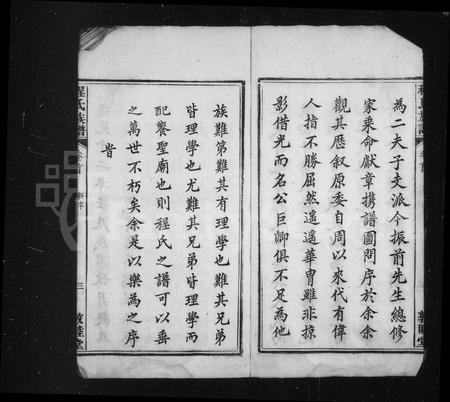 為二夫子支派今振前先生總修
家乘命獻章携譜圖問序於余余
觀其歷叙原委自周以來代有偉
人指不勝屈然遥遥華胄雖非掠
影借光而名公巨卿俱不足為他
族難第難其有理學也難其兄弟
皆理學也尤難其兄弟皆理學而
配饗聖廟也則程氏之譜可以垂
之萬世不朽矣余是以樂為之序
昔
程氏族譜
卷首
三
敦睦堂